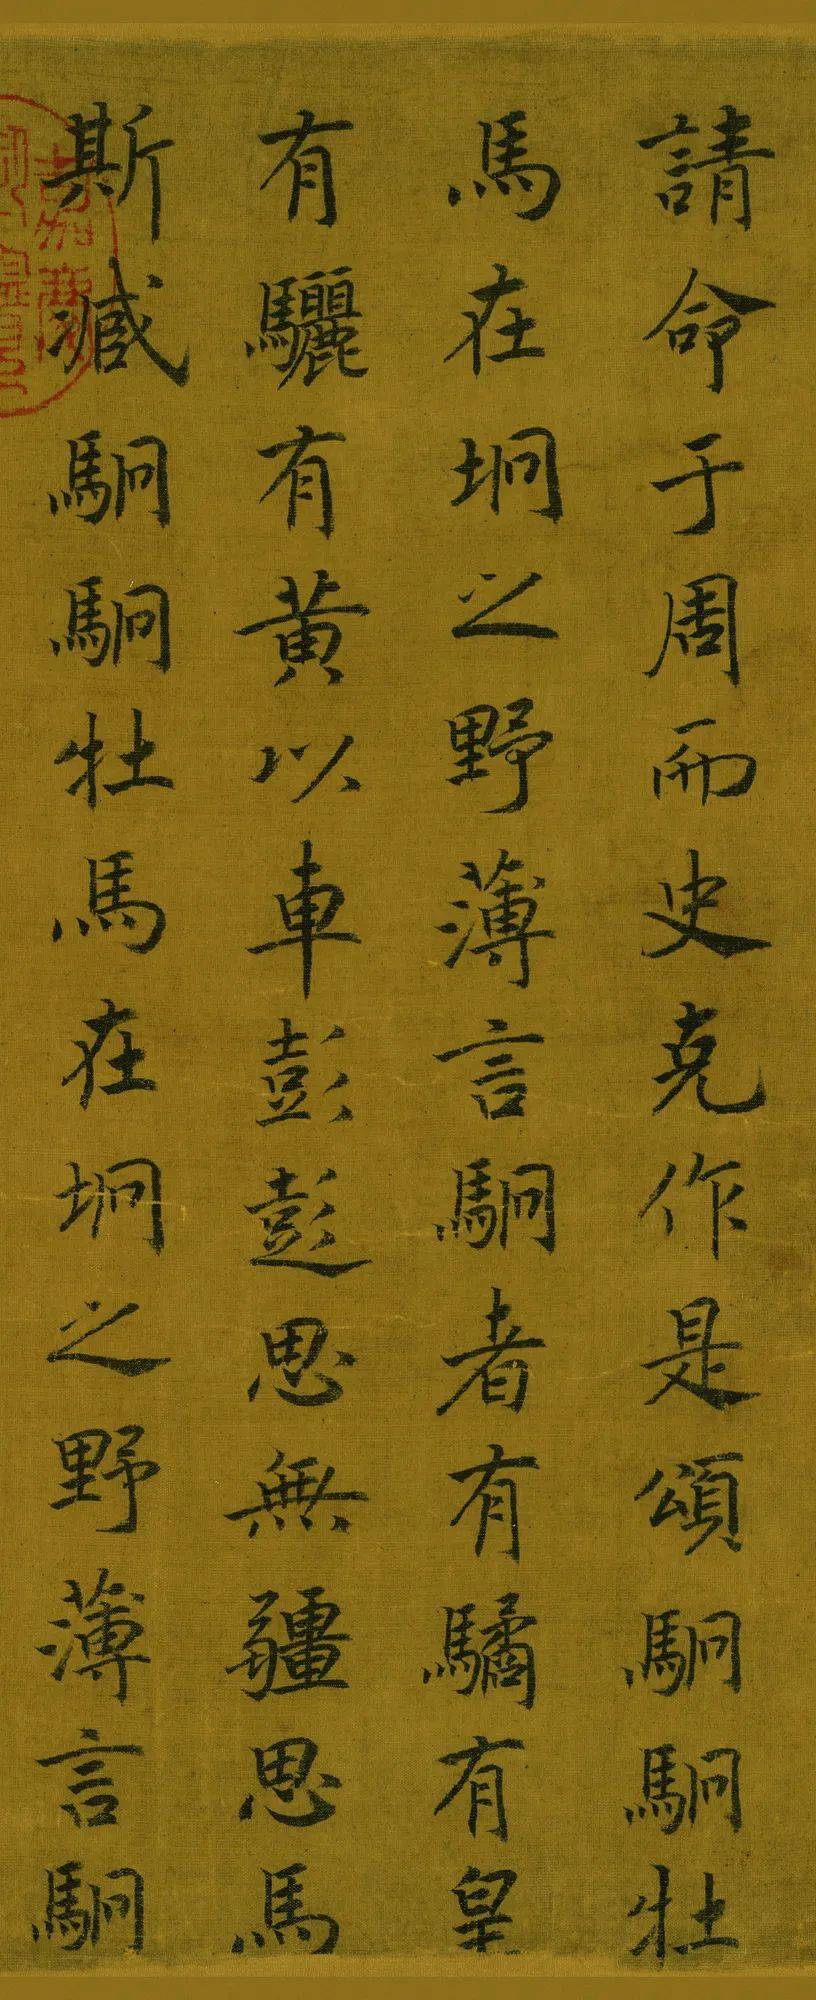 請命于周而史克作是頌駉駉牡
馬在坰之野薄言駉者有驈有皇
有驪有黃以車彭彭思無疆思馬
斯臧駉駉牡馬在坰之野薄言駉